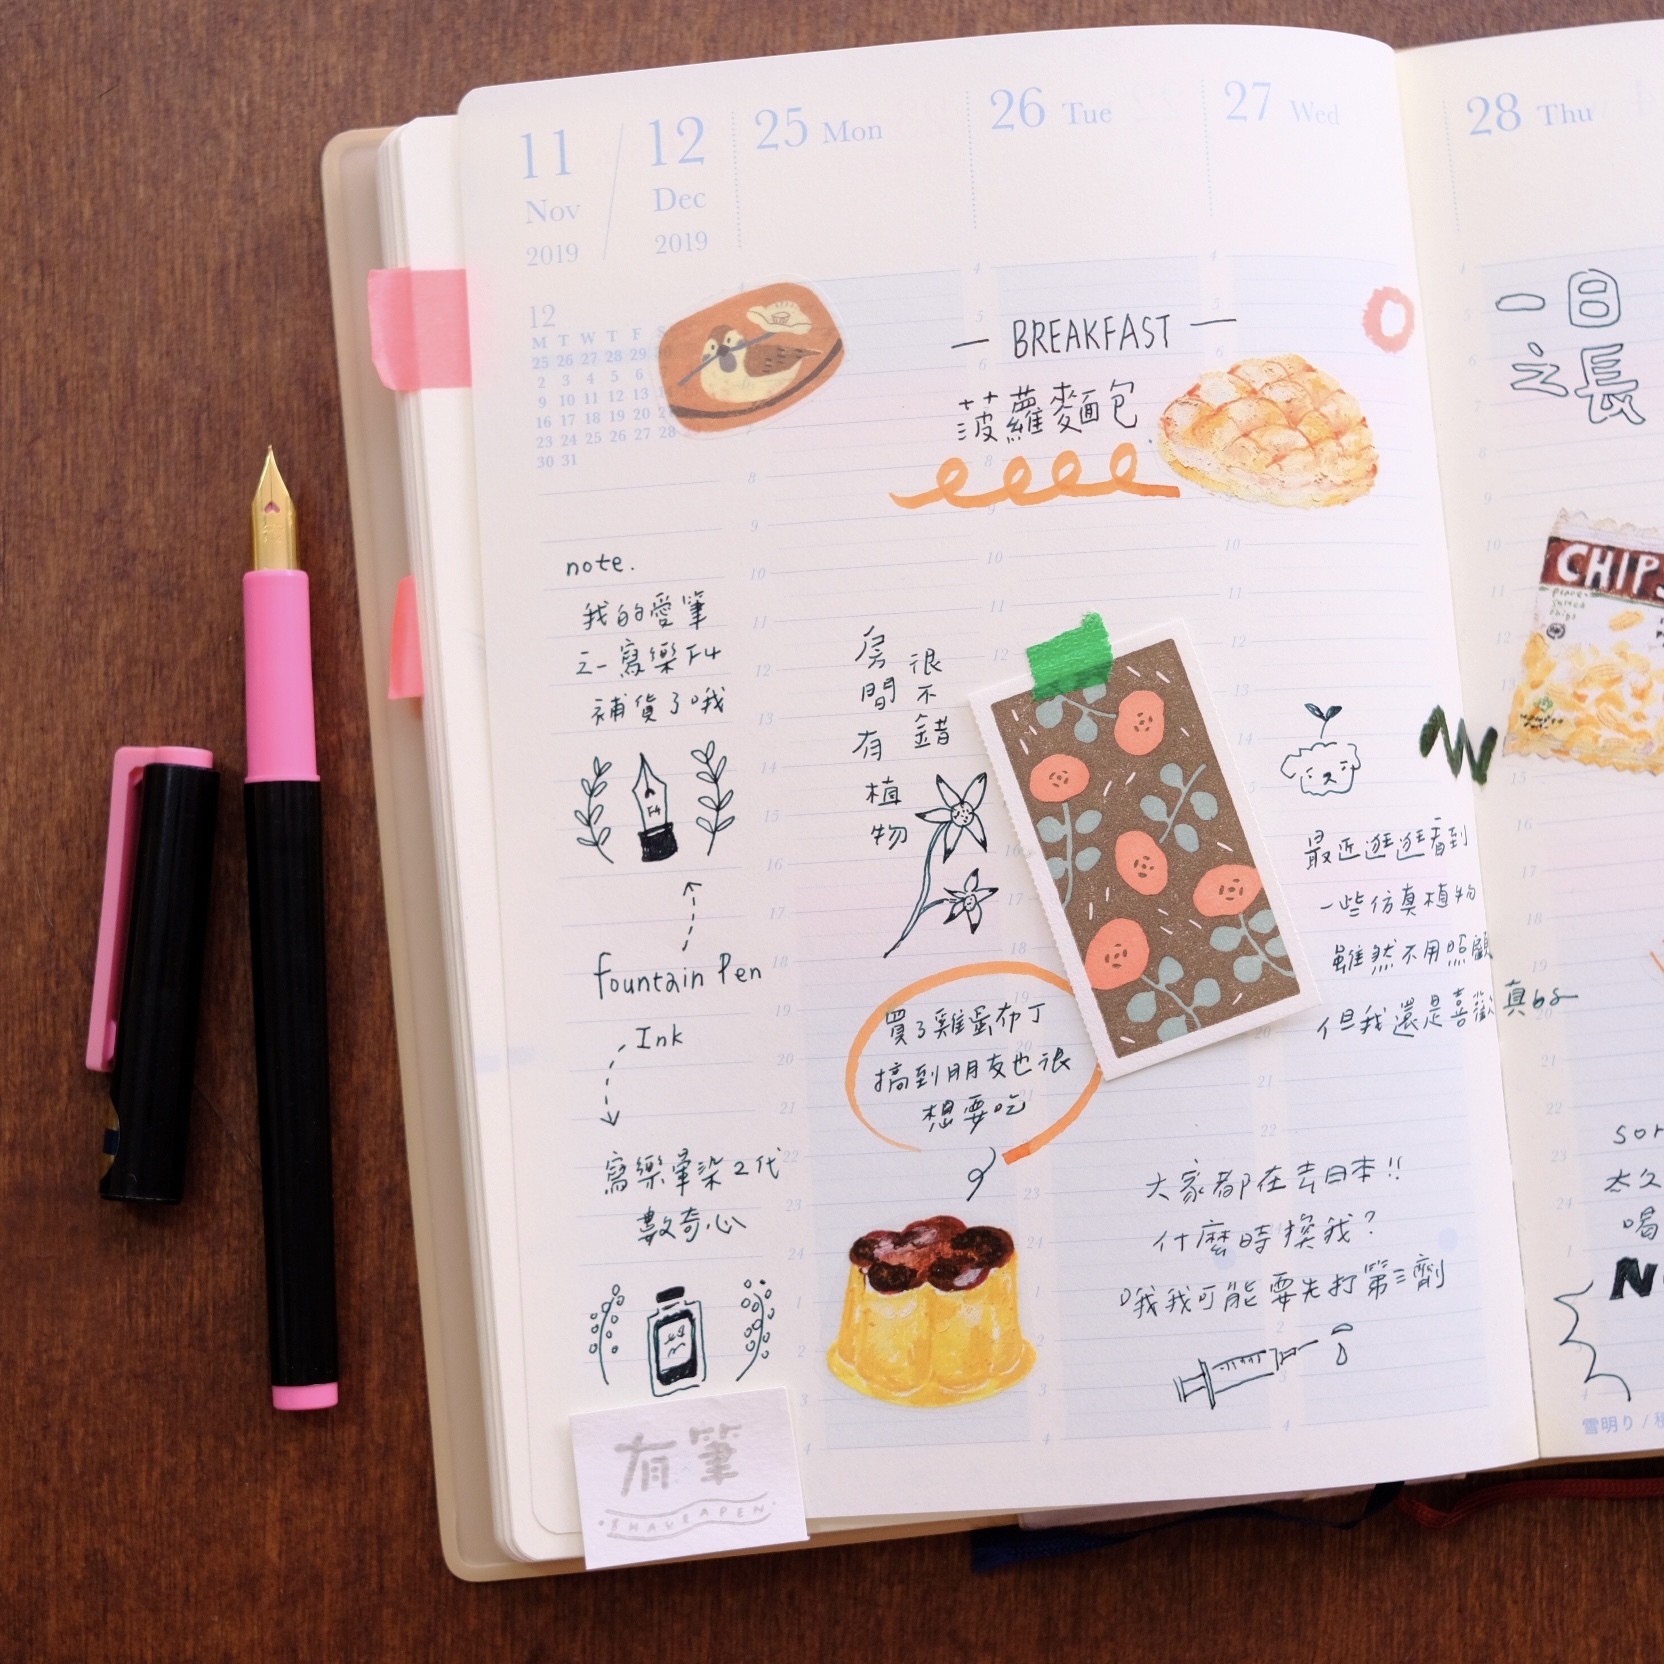 11 / 12
Nov Dec
2019 2019
25 Mon
26 Tue
27 Wed
28 Thu
12
M T W T F S
25 26 27 28 29 30
2 3 4 5 6
9 10 11 12 13
16 17 18 19 20 21
23 24 25 26 27 28
30 31
note.
我的愛筆
之一寫樂F4
補貨了哦
F4
fountain Pen
Ink
寫樂暈染2代
數奇心
有筆
IHAVEAPEN
— BREAKFAST —
菠蘿麵包
房間有植物
很不錯
買了雞蛋布丁
搞到朋友也很
想要吃
最近逛逛看到
一些仿真植物
雖然不用照顧
但我還是喜歡真的
大家都在去日本!!
什麼時換我?
哦我可能要先打第三劑
一日
之長
CHIPS
太久
喝
雪明り /